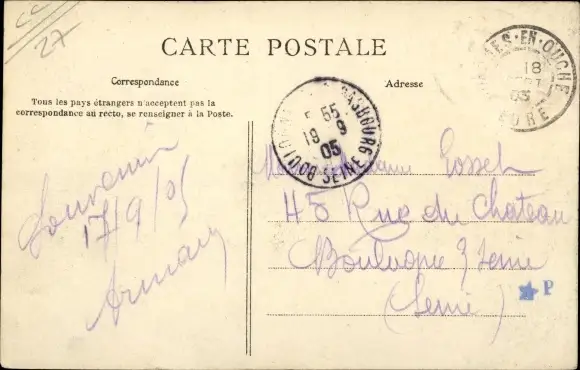 27
CARTE POSTALE
Correspondance
Tous les pays étrangers n'acceptent pas la
correspondance au recto, se renseigner à la Poste.
Souvenir
17/9/05
Adresse
EN-OUCHE
18
05
EURE
5 55
19 9
05
STRASBOURG
BOULOGNE
SEINE
45 Rue du Chateau
Boulogne s/ Seine
(Seine)
P